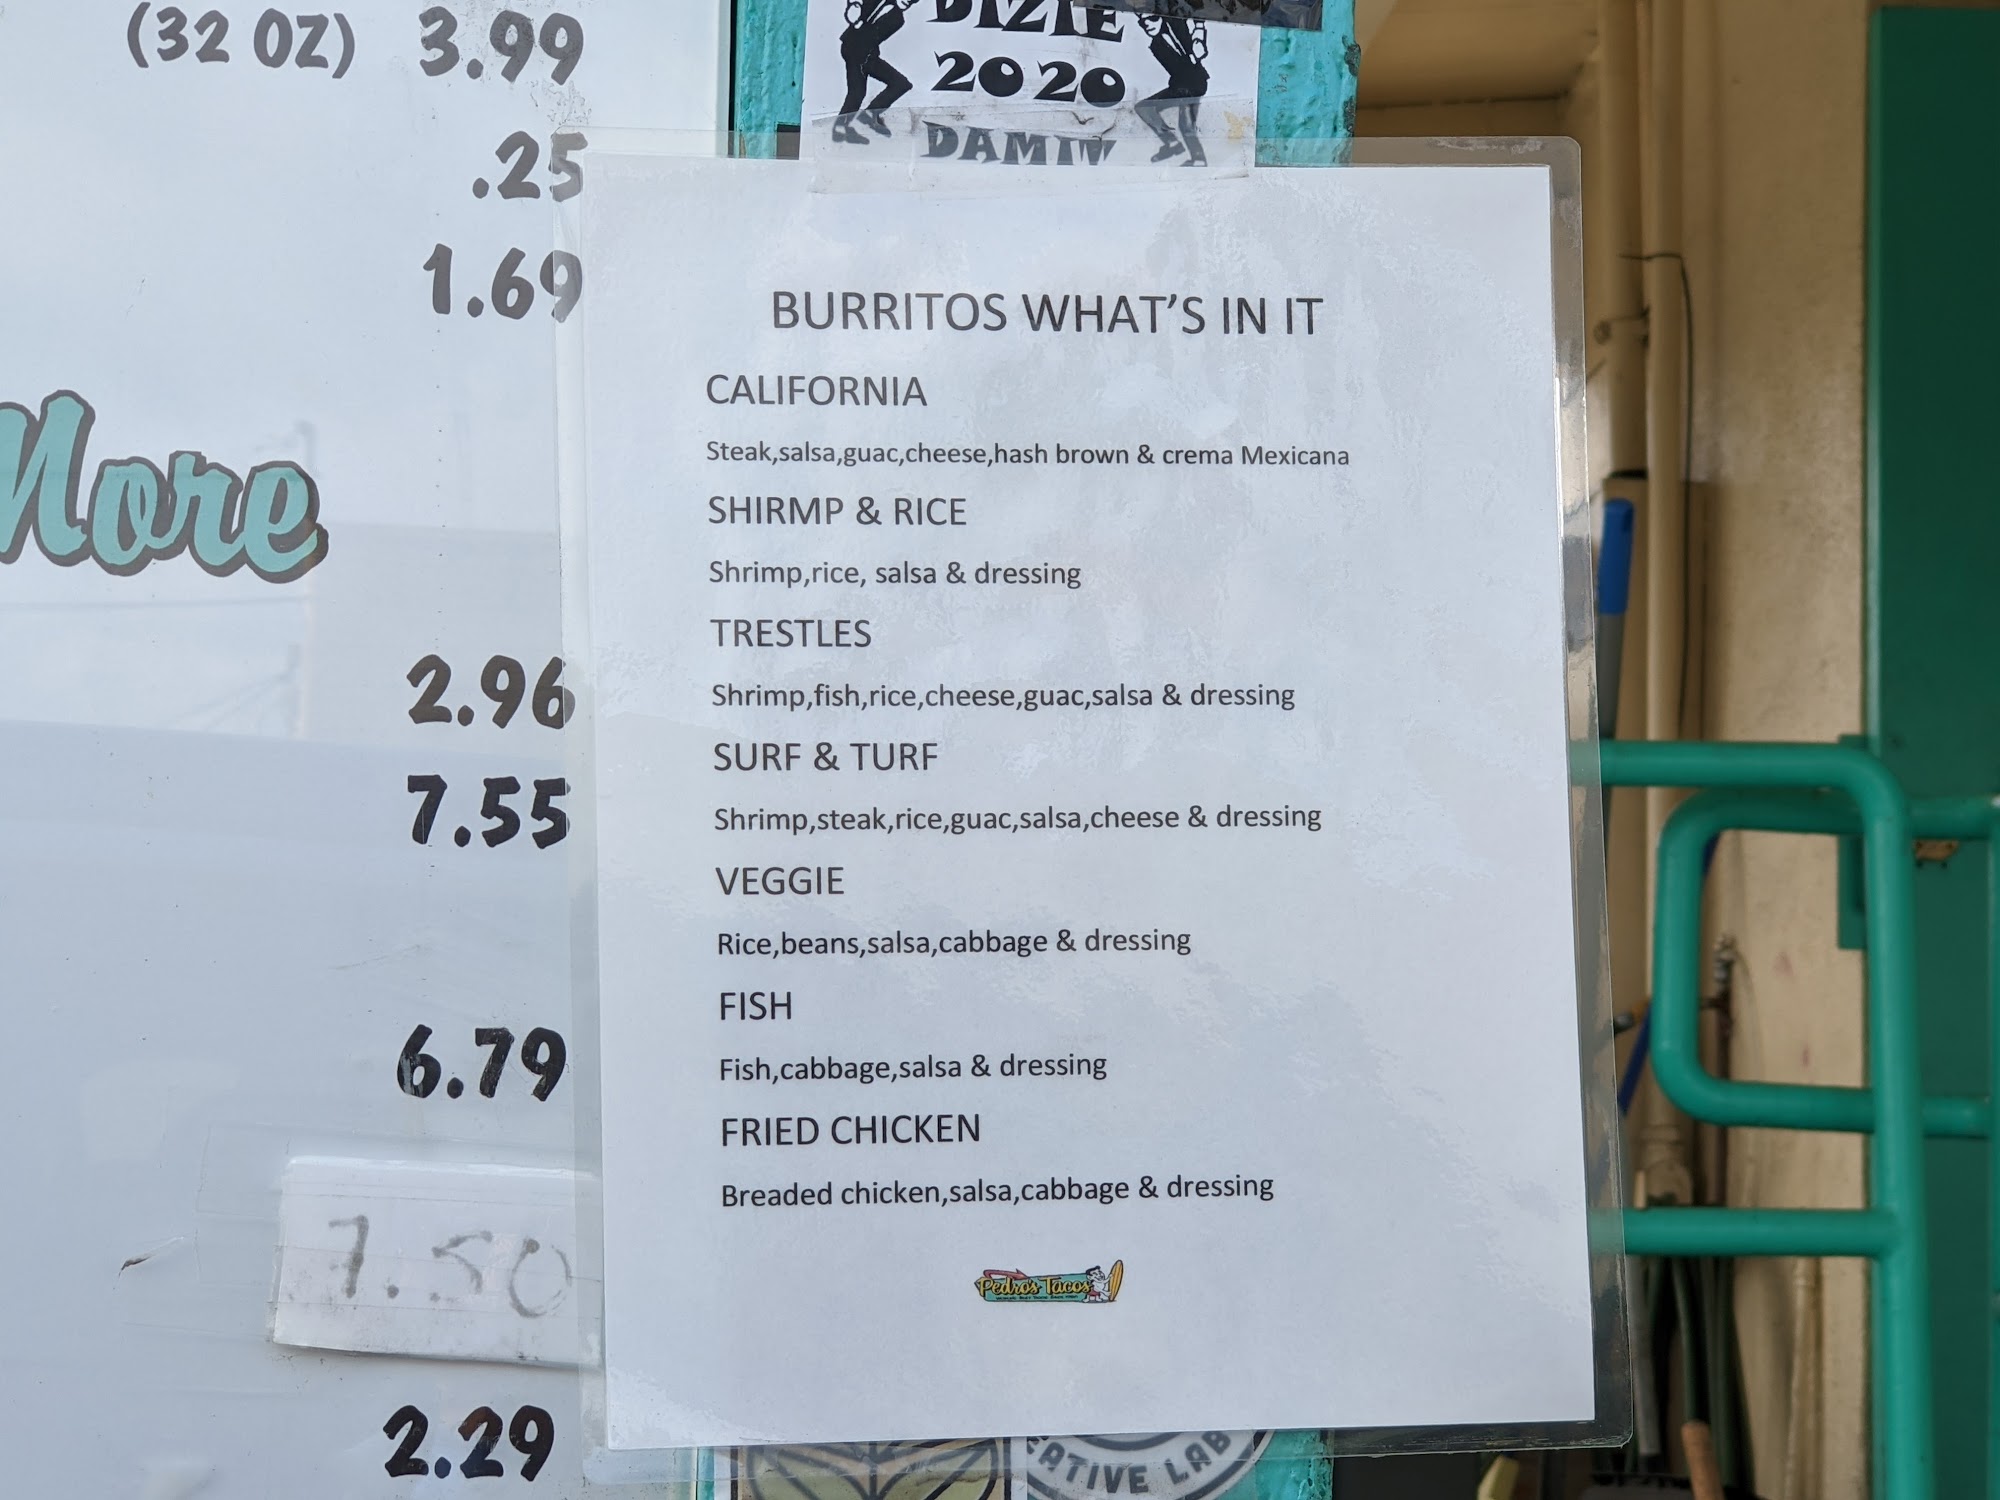 (32 OZ) 3.99
.25
1.69
More
2.96
7.55
6.79
7.50
2.29
DIZIE
2020
DAMIN
BURRITOS WHAT'S IN IT
CALIFORNIA
Steak,salsa,guac,cheese,hash brown & crema Mexicana
SHIRMP & RICE
Shrimp,rice, salsa & dressing
TRESTLES
Shrimp,fish,rice,cheese,guac,salsa & dressing
SURF & TURF
Shrimp,steak,rice,guac,salsa,cheese & dressing
VEGGIE
Rice,beans,salsa,cabbage & dressing
FISH
Fish,cabbage,salsa & dressing
FRIED CHICKEN
Breaded chicken,salsa,cabbage & dressing
Pedro's Tacos
EATIVE LAB